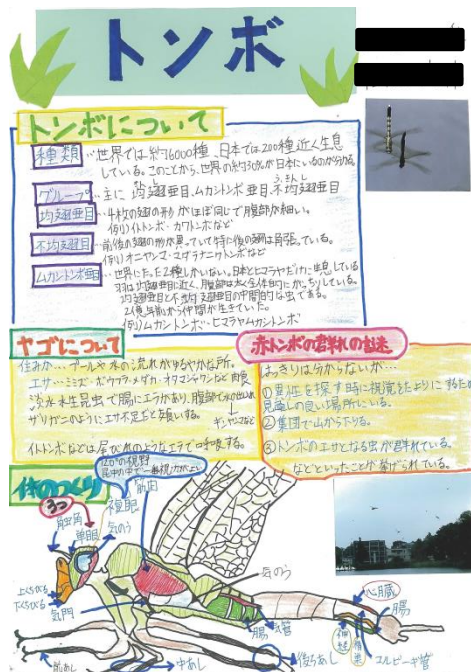 トンボ
トンボについて
種類…世界では約6000種、日本では200種近く生息
している。このことから、世界の約30%が日本にいるのが分かる。
グループ…主に均翅亜目、ムカシトンボ亜目、不均翅亜目
均翅亜目…4枚の翅の形がほぼ同じで腹部が細い。
例)イトトンボ・カワトンボなど
不均翅亜目…前後の翅の形が異っていて特に後の翅は肩張っている。
例)オニヤンマ・ムカシトンボ亜目…世界にたった2種しかいない。日本とヒマラヤだけに生息している
羽は均翅亜目に近く、腹部は太く全体的にがっちりしている。
均翅亜目と不均翅亜目の中間的な虫である。
2億年前から仲間が生きていた。
例)ムカシトンボ・ヒマラヤムカシトンボ
ヤゴについて
住みか…プールや水の流れがゆるやかな所。
エサ…ミミズ・ボウフラ・メダカ・オタマジャクシなど肉食
淡水水生昆虫で腸にエラがあり、腹部で水の出入れ
ザリガニのようにエサ不足だと共食いする。
ギンヤンマなど
イトトンボなどは尾びれのようなエラで呼吸する。
赤トンボの群れの謎
はっきりは分からないが…
①異性を探す時に視覚をたよりにするため
見通しの良い場所にいる。
②集団で山から下りる。
③トンボのエサとなる虫が群れている。
などといったことが挙げられている。
体のつくり
270°の視野
昆虫の中で一番視力がよい
3つ
触角
単眼
複眼
筋肉
気のう
上くちびる
下くちびる
気門
気のう
腸
気管
心臓
腸
神経
精巣
マルピーギ管
前あし
中あし
後ろあし